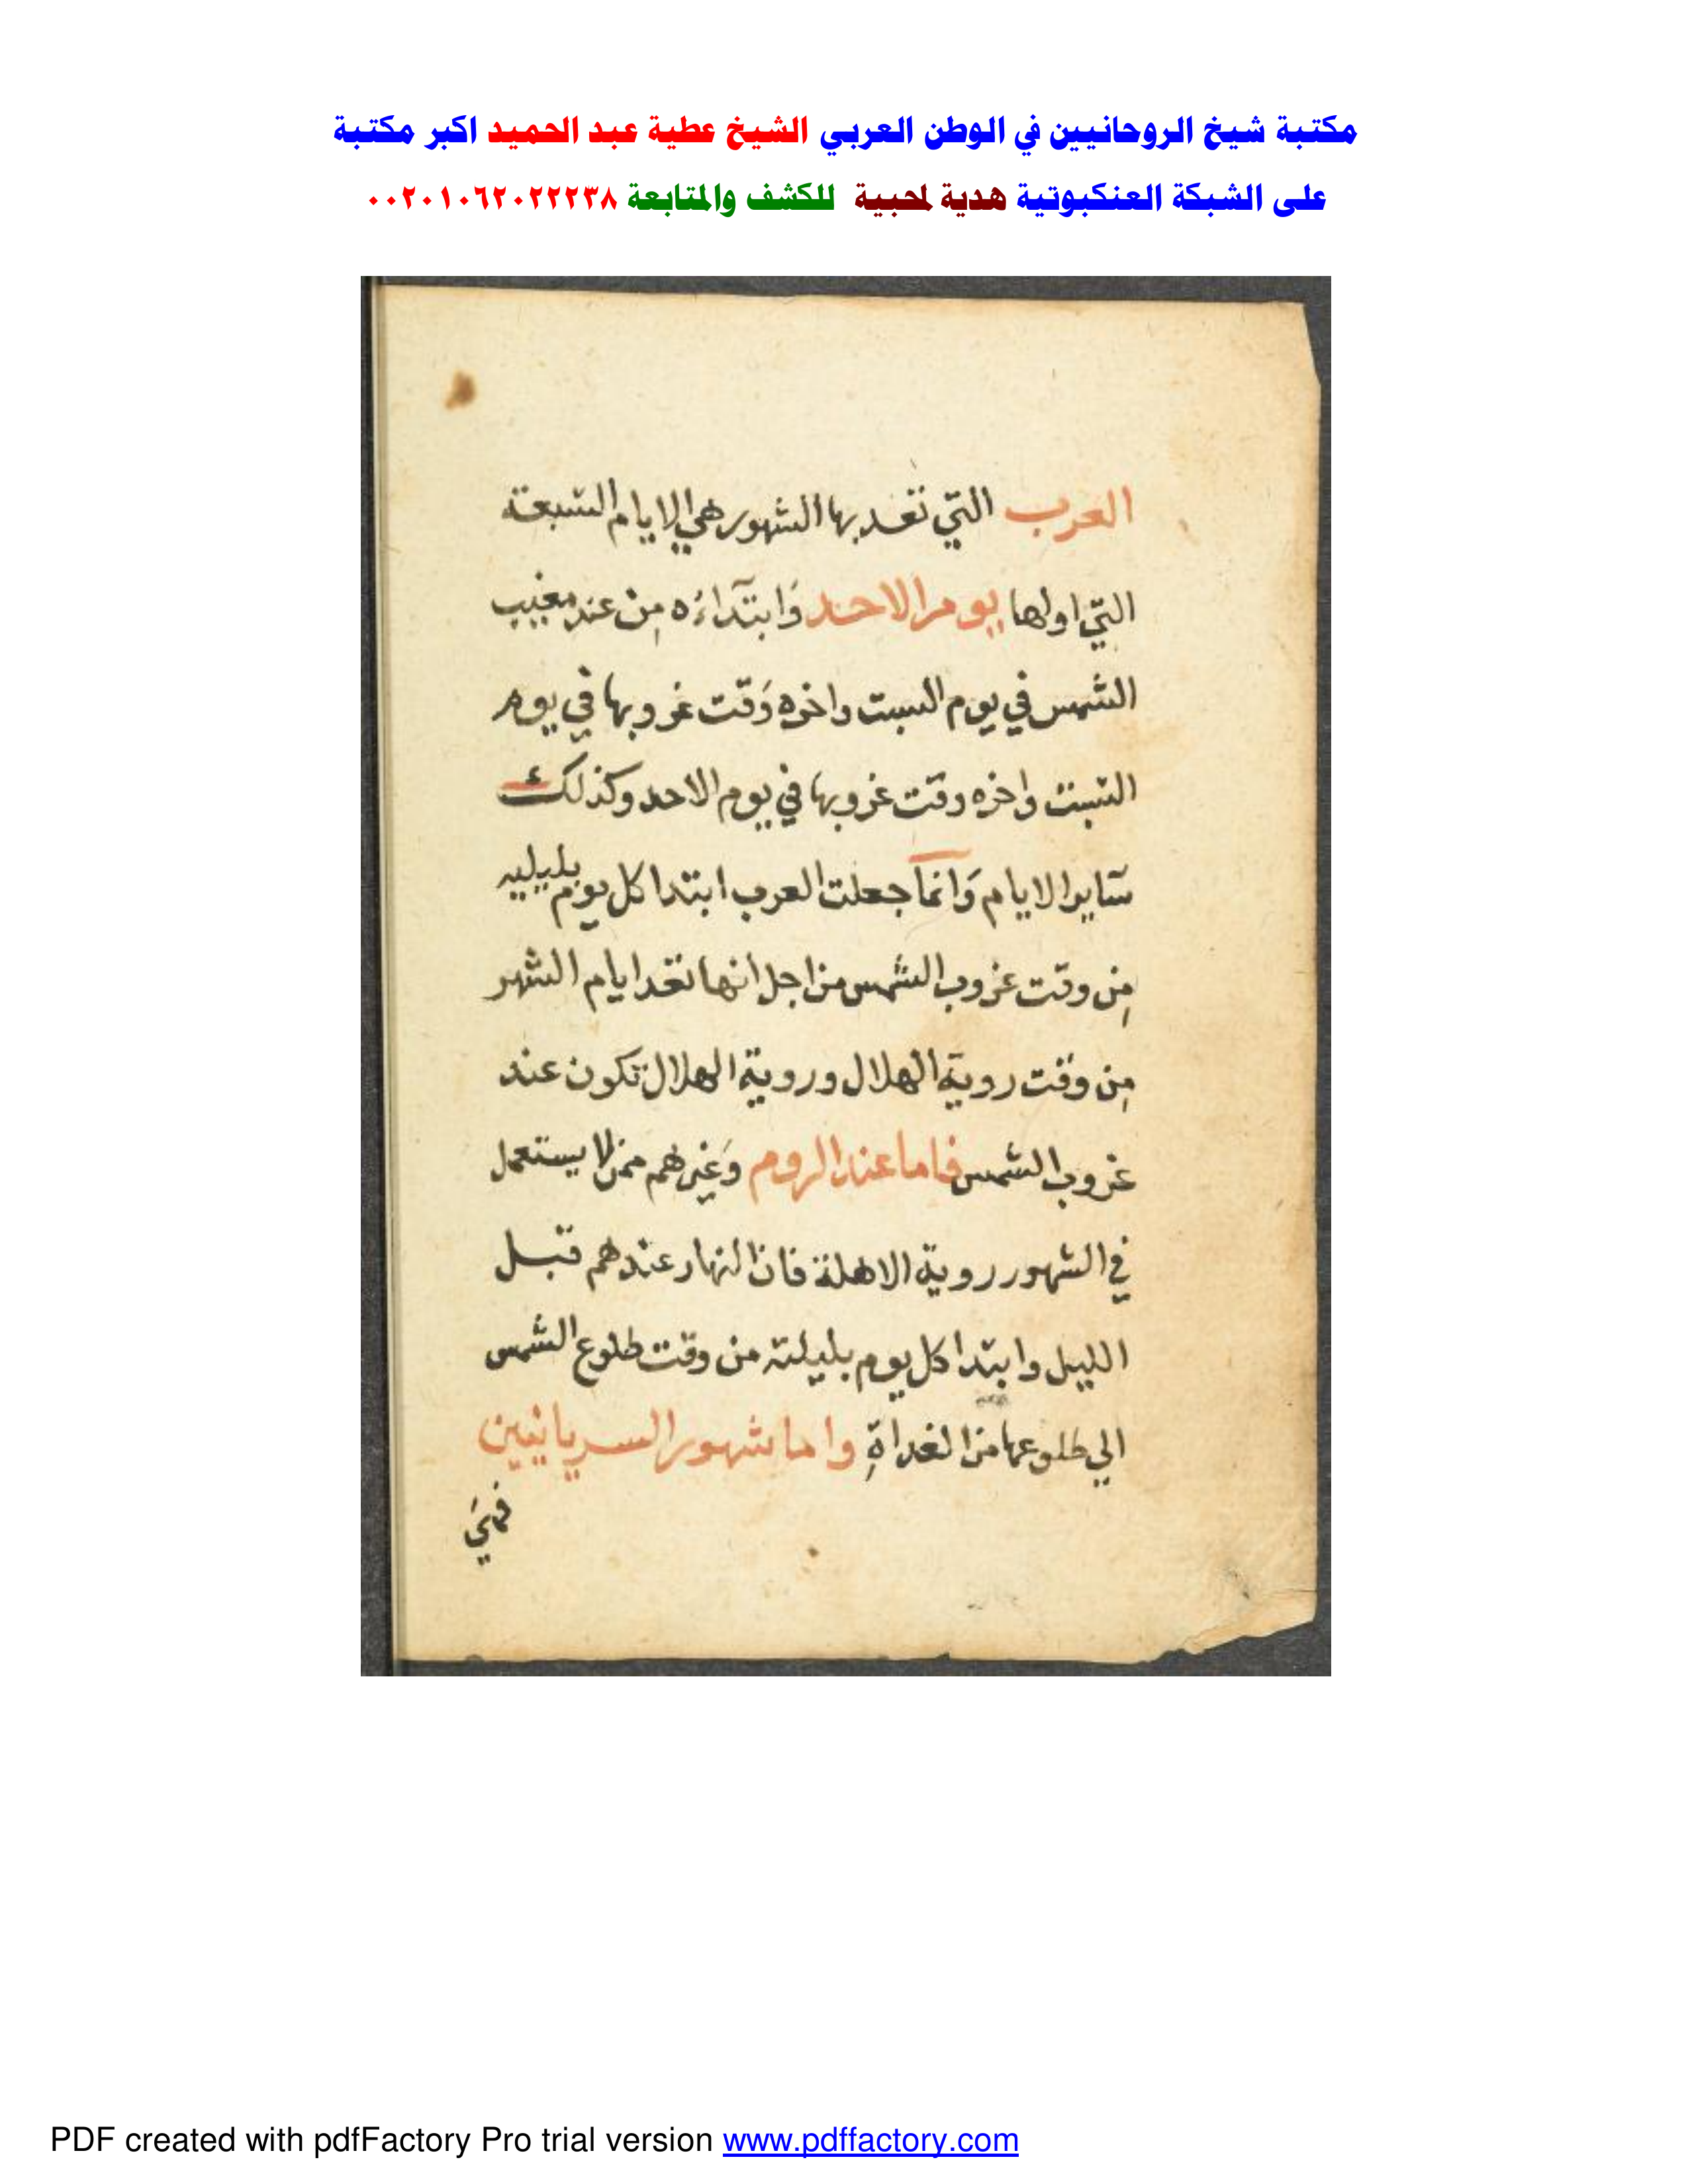 مكتبة شيخ الروحانيين في الوطن العربي الشيخ عطية عبد الحميد اكبر مكتبة
على الشبكة العنكبوتية هدية لمحبية للكشف والمتابعة ٠٠٢٠١٠٦٢٠٢٢٢٣٨
العرب التي تعد بها الشهور هي الايام السبعة
التي اولها يوم الاحد وَابتدآءه مِن عند مغيب
الشمس في يوم السبت واخره وَقت غروبها في يوم
السبت واخره وقت غروبها في يوم الاحد وكذلك
سآير الايام وَانمآ جعلت العرب ابتدا كل يوم بليليه
مِن وقت غروب الشمس من اجل انها تعد ايام الشهر
مِن وقت روية الهلال وروية الهلال تكون عند
غروب الشمس فاما عند الروم وَغيرهم ممن لا يستعمل
في الشهور روية الاهلة فان النهار عندهم قبل
الليل وابتدا كل يوم بليلته من وقت طلوع الشمس
الي طلوعها من الغداةِ واما شهور السريانيين
فهيَ
PDF created with pdfFactory Pro trial version www.pdffactory.com